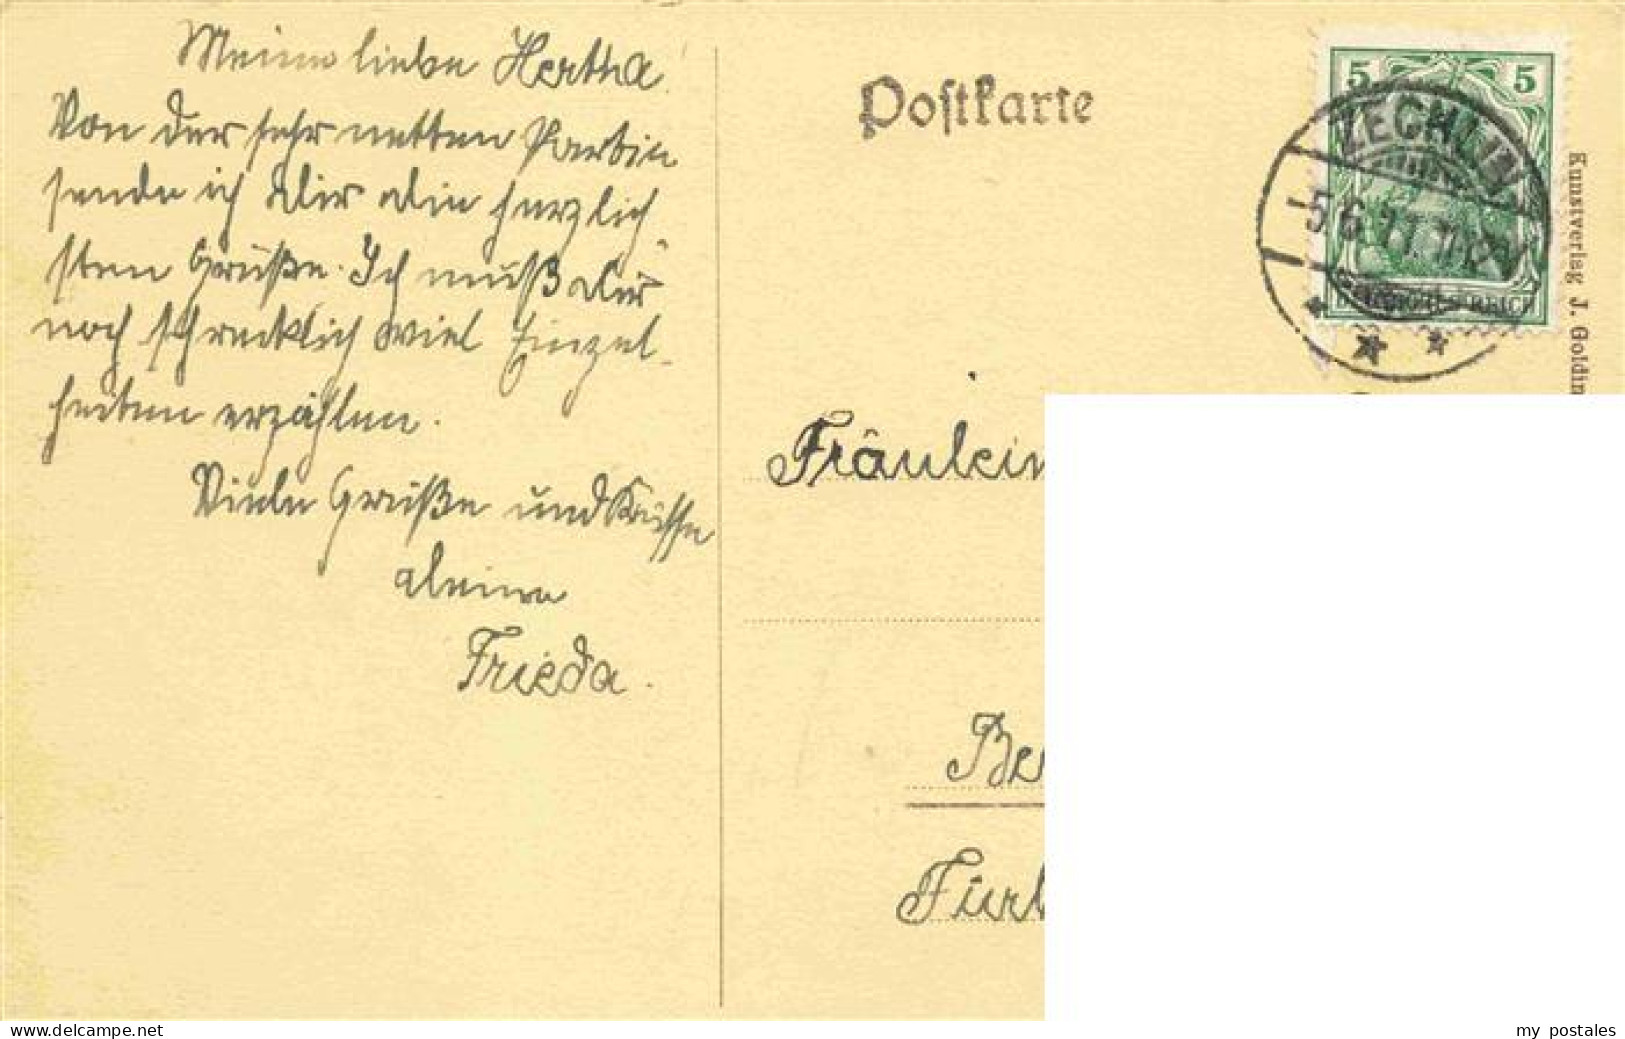 Meine liebe Hertha!
Von der sehr netten Partie
sende ich Dir die herzlich
sten Grüße. Ich muß Dir
noch schrecklich viel Einzel-
heiten erzählen.
Viele Grüße und Küsse
Deine
Frieda.
Postkarte
5 5
ZECHLIN
5.6.
DEUTSCHES REICH
Kunstverlag J. Goldin
Fräulein
Be
Fürb
delcampe.net
my postales